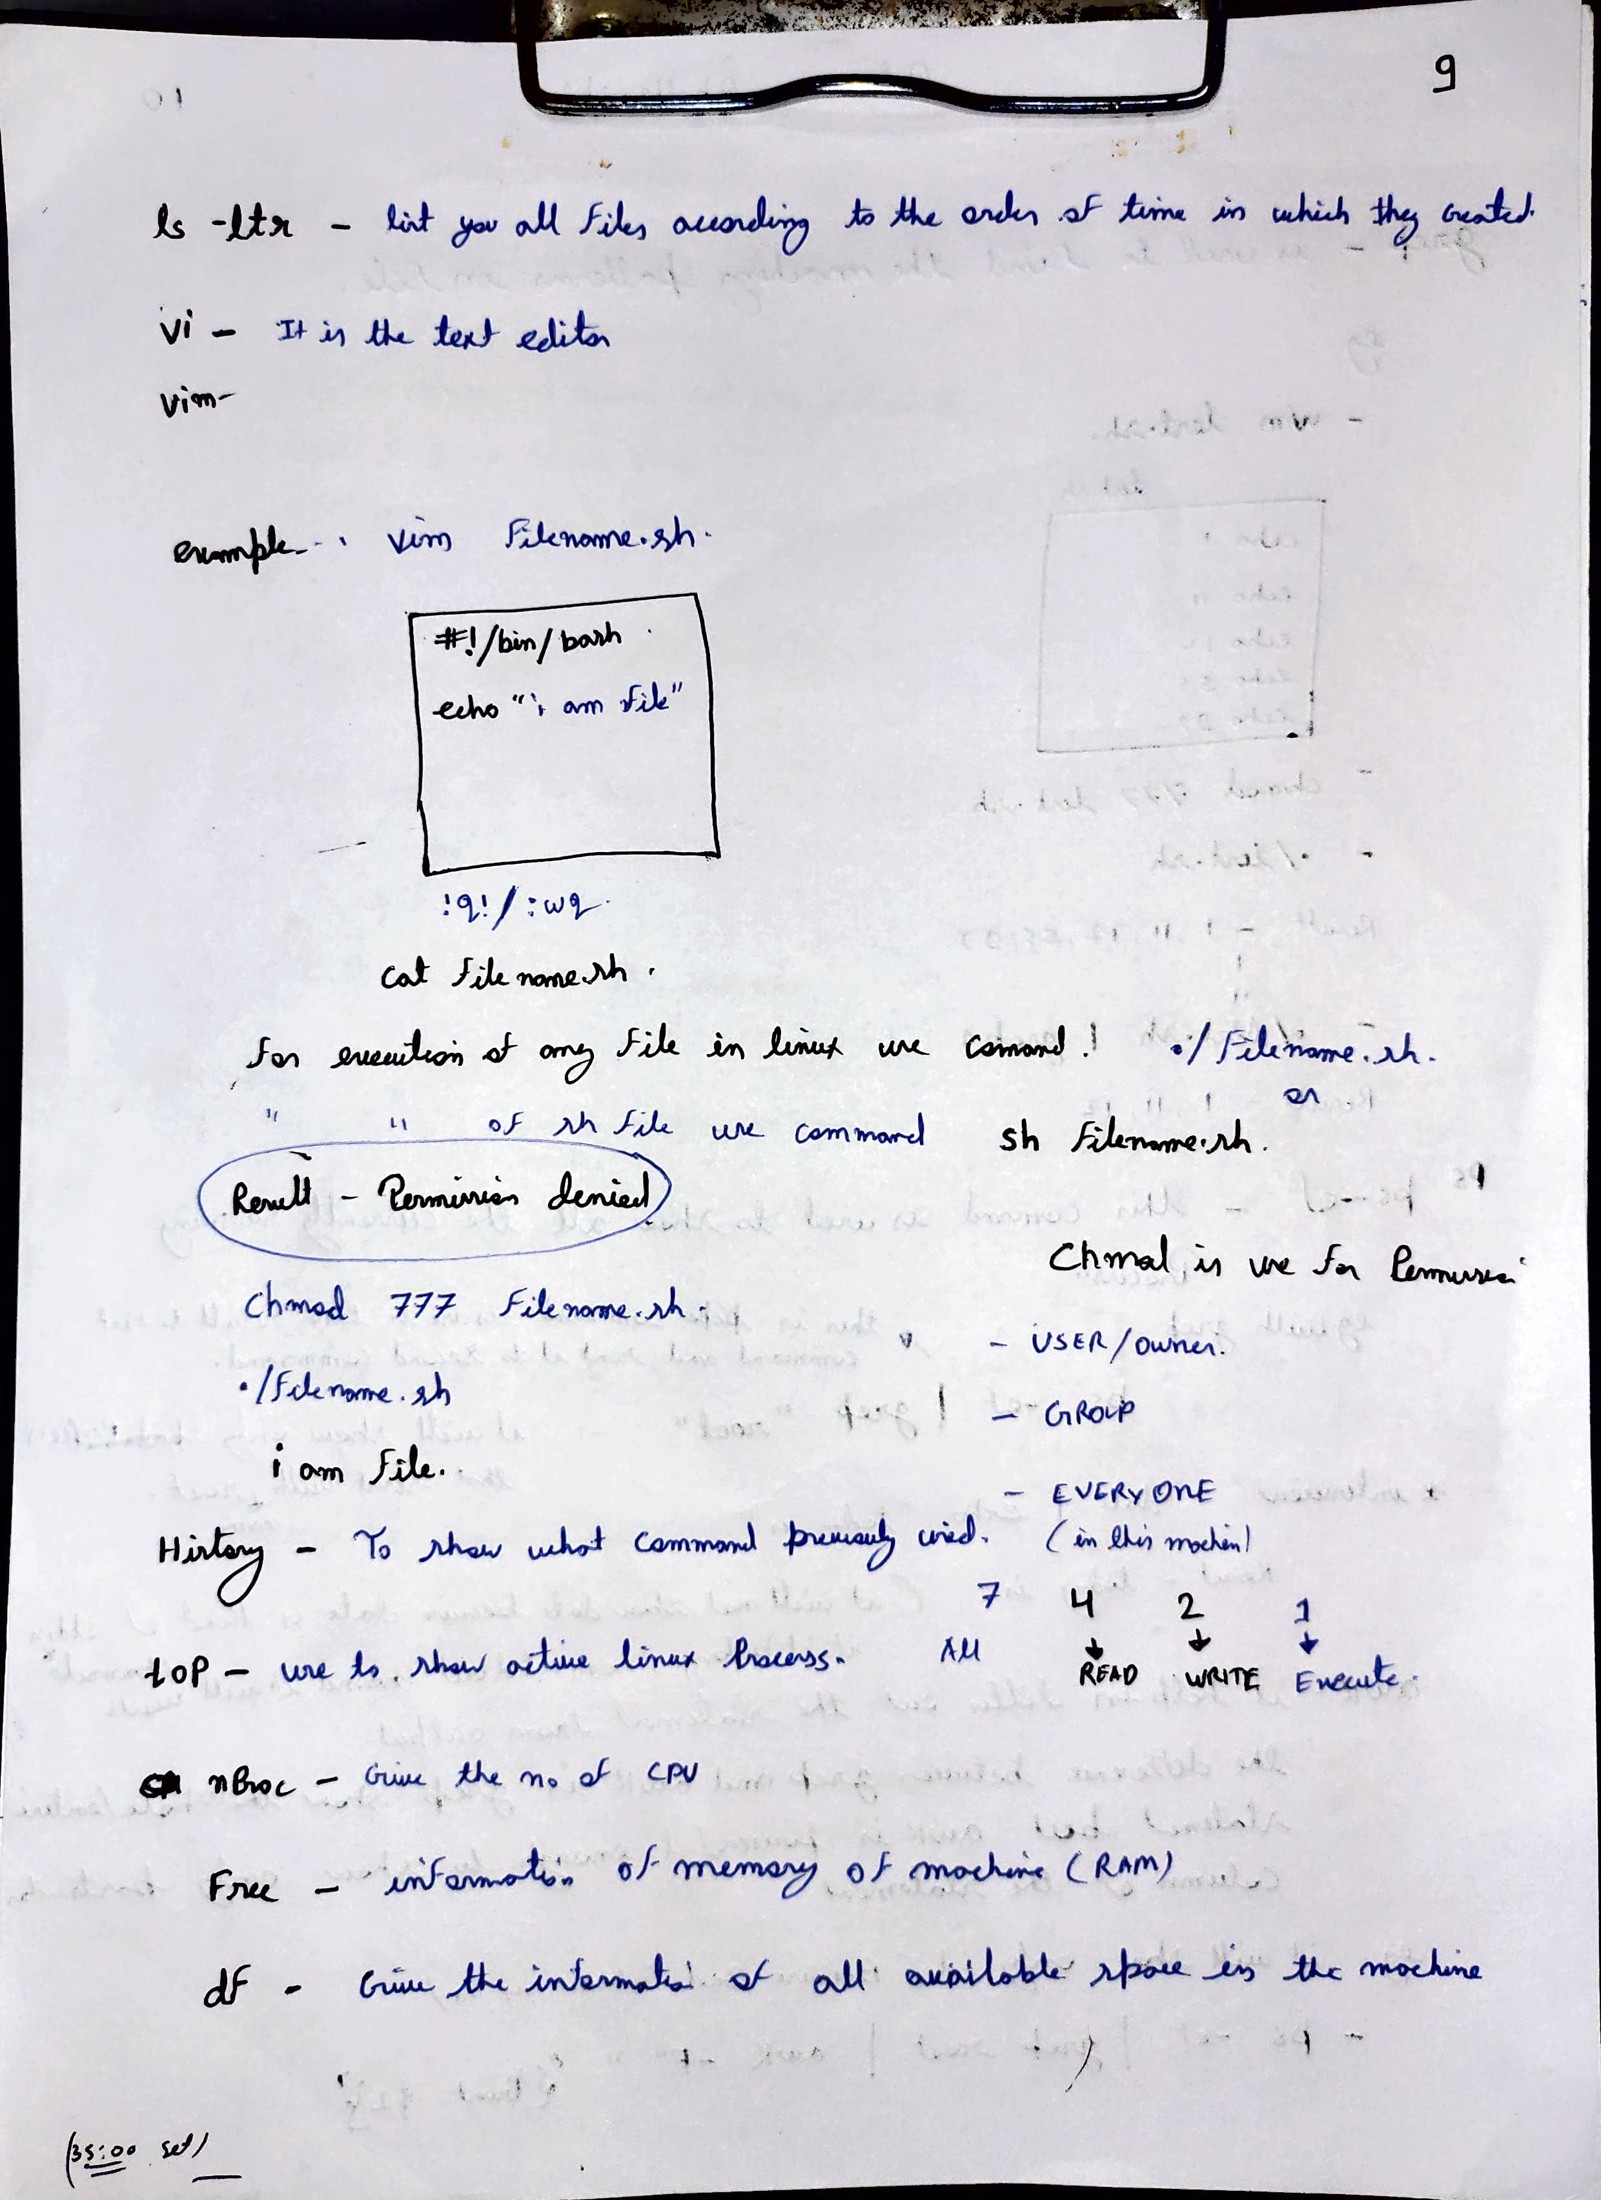 9
ls -ltr - list you all files according to the order of time in which they created.
vi - It is the text editor
vim-
example - : vim Filename.sh.
#!/bin/bash
echo "i am file"
:q! / :wq.
cat filename.sh.
for execution of any file in linux use comand ! ./Filename.sh.
or
" " of sh file use command sh filename.sh.
Result - Permission denied
Chmod is use for Permission
Chmod 777 Filename.sh.
- USER/owner.
./Filename.sh
- GROUP
i am file.
- EVERYONE
History - To show what command previously used. (in this machine)
7 4 2 1
top - use to show active linux Process. All READ WRITE Execute.
nProc - Give the no of CPU
Free - information of memory of machine (RAM)
df - Give the information of all available space in the machine
(35:00 set)